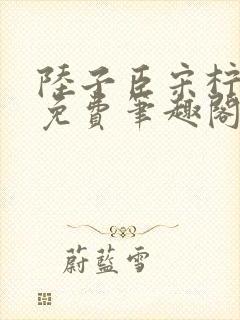 陸子臣宋梓
免費筆趣閣
蔚藍雪